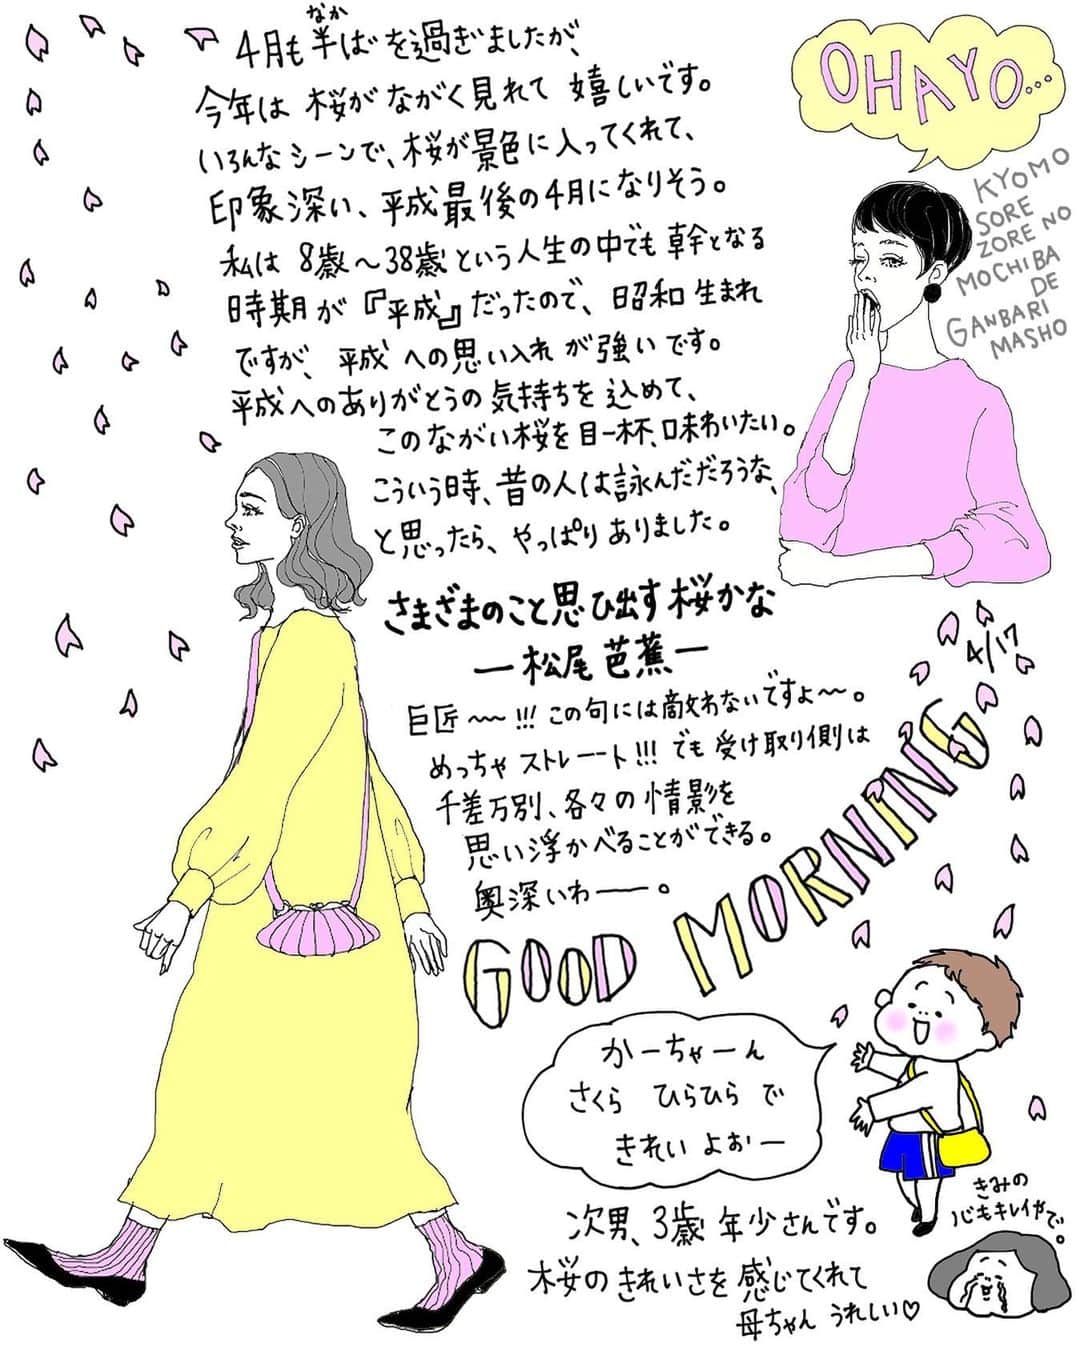 なか
4月も半ばを過ぎましたが、
今年は 桜が ながく見れて 嬉しいです。
いろんなシーンで、桜が景色に入ってくれて、
印象深い、平成最後の4月になりそう。
私は 8歳〜38歳という人生の中でも 幹となる
時期が『平成』だったので、昭和生まれ
ですが、平成への思い入れが強いです。
平成へのありがとうの気持ちを込めて、
このながい桜を目一杯、味わいたい。
こういう時、昔の人は詠んだだろうな、
と思ったら、やっぱりありました。
さまざまのこと思ひ出す桜かな
ー松尾芭蕉ー
巨匠〜〜!!! この句には敵わないですよ〜〜。
めっちゃ ストレート!!! でも 受け取り側は
千差万別、各々の情景を
思い浮かべることができる。
奥深いわーー。
OHAYO...
KYOMO
SORE
ZORE NO
MOCHIBA
DE
GANBARI
MASHO
4/17
GOOD MORNING
かーちゃーん
さくら ひらひら で
きれい よぉー
次男、3歳 年少さんです。
桜の きれいさを 感じてくれて
母ちゃん うれしい♡
きみの
心もキレイやで。